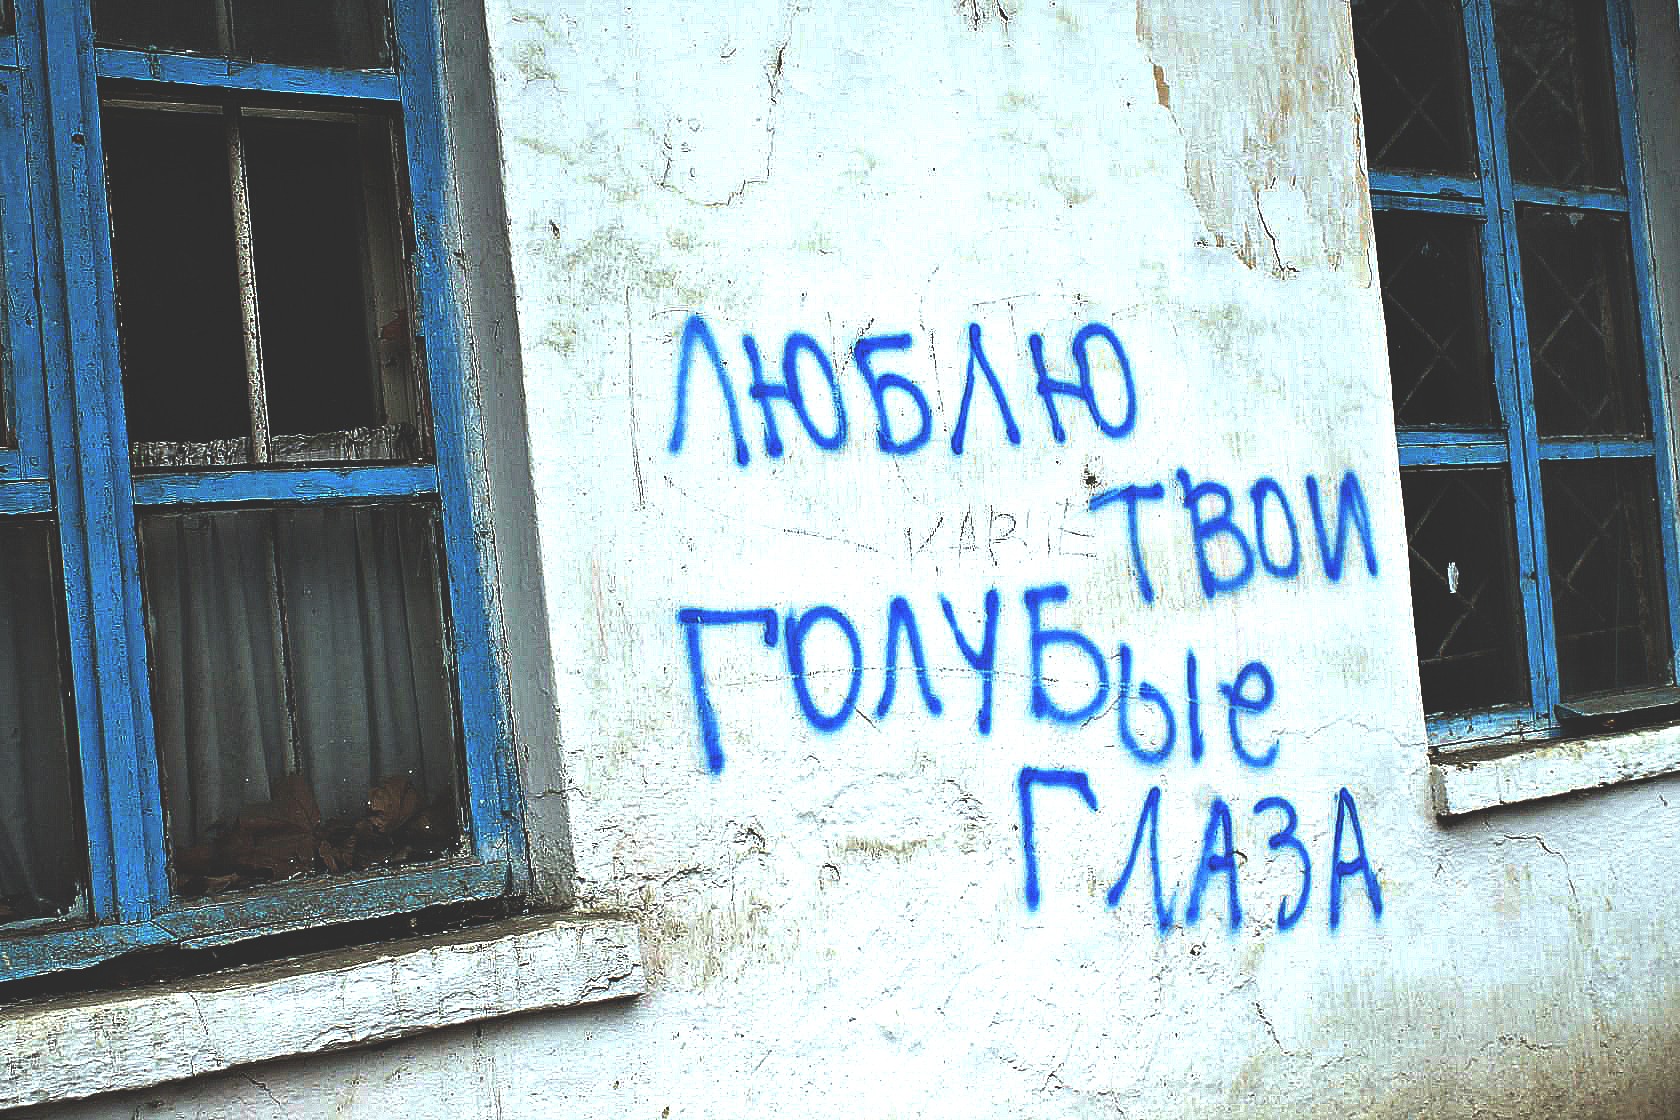 ЛЮБЛЮ
ТВОИ
ГОЛУБЫе
ГЛАЗА